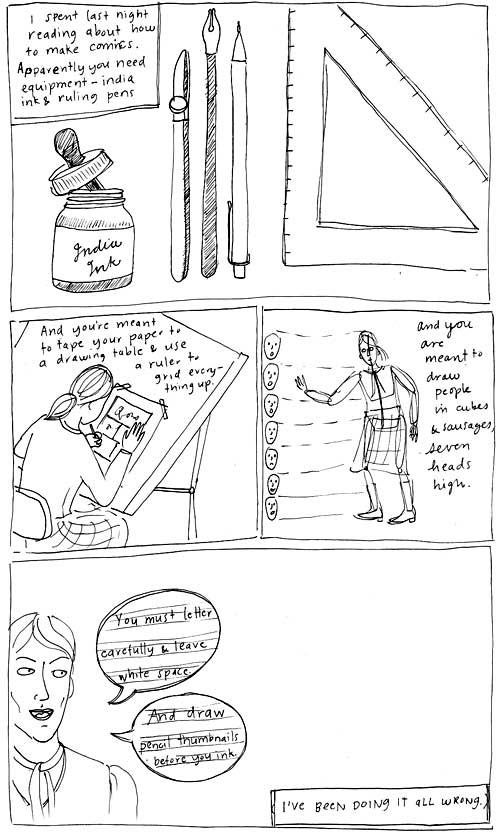 I spent last night
reading about how
to make comics.
Apparently you need
equipment - india
ink & ruling pens
India
Ink
And you're meant to
to tape your paper to
a drawing table & use
a ruler to
grid every-
thing up.
and you
are
meant to
draw
people
in cubes
& sausages,
seven
heads
high.
You must letter
carefully & leave
white space.
And draw
pencil thumbnails
before you ink.
I'VE BEEN DOING IT ALL WRONG.